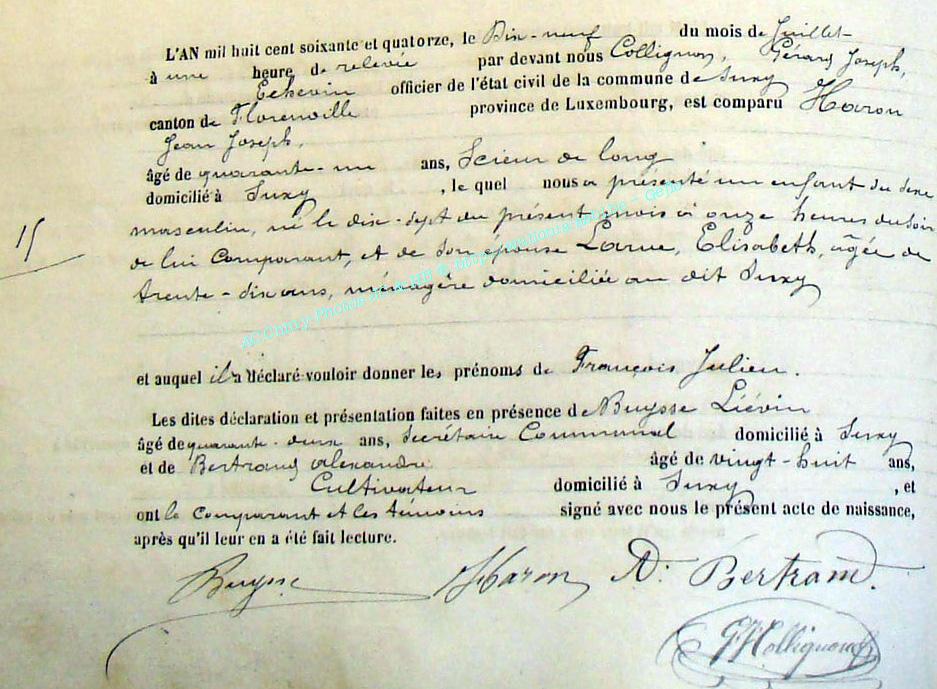 L'AN mil huit cent soixante et quatorze, le Dix-neuf du mois de Juillet
à une heure de relevée par devant nous Collignon, Gérard Joseph,
Echevin officier de l'état civil de la commune de Suxy
canton de Florenville province de Luxembourg, est comparu Haron
Jean Joseph,
âgé de quarante-un ans, Scieur de long
domicilié à Suxy, le quel nous a présenté un enfant du sexe
masculin, né le dix-sept du présent mois à onze heures du soir
15
de lui comparant, et de son épouse Lame, Elisabeth, âgée de
trente-dix ans, ménagère domiciliée au dit Suxy
et auquel il a déclaré vouloir donner les prénoms de François Julien.
Les dites déclaration et présentation faites en présence de Buysse Liévin
âgé de quarante-deux ans, Secrétaire Communal domicilié à Suxy
et de Bertrand alexandre âgé de vingt-huit ans,
Cultivateur domicilié à Suxy, et
ont le comparant et les témoins signé avec nous le présent acte de naissance,
après qu'il leur en a été fait lecture.
Buysse Haron A. Bertrand.
GJCollignon